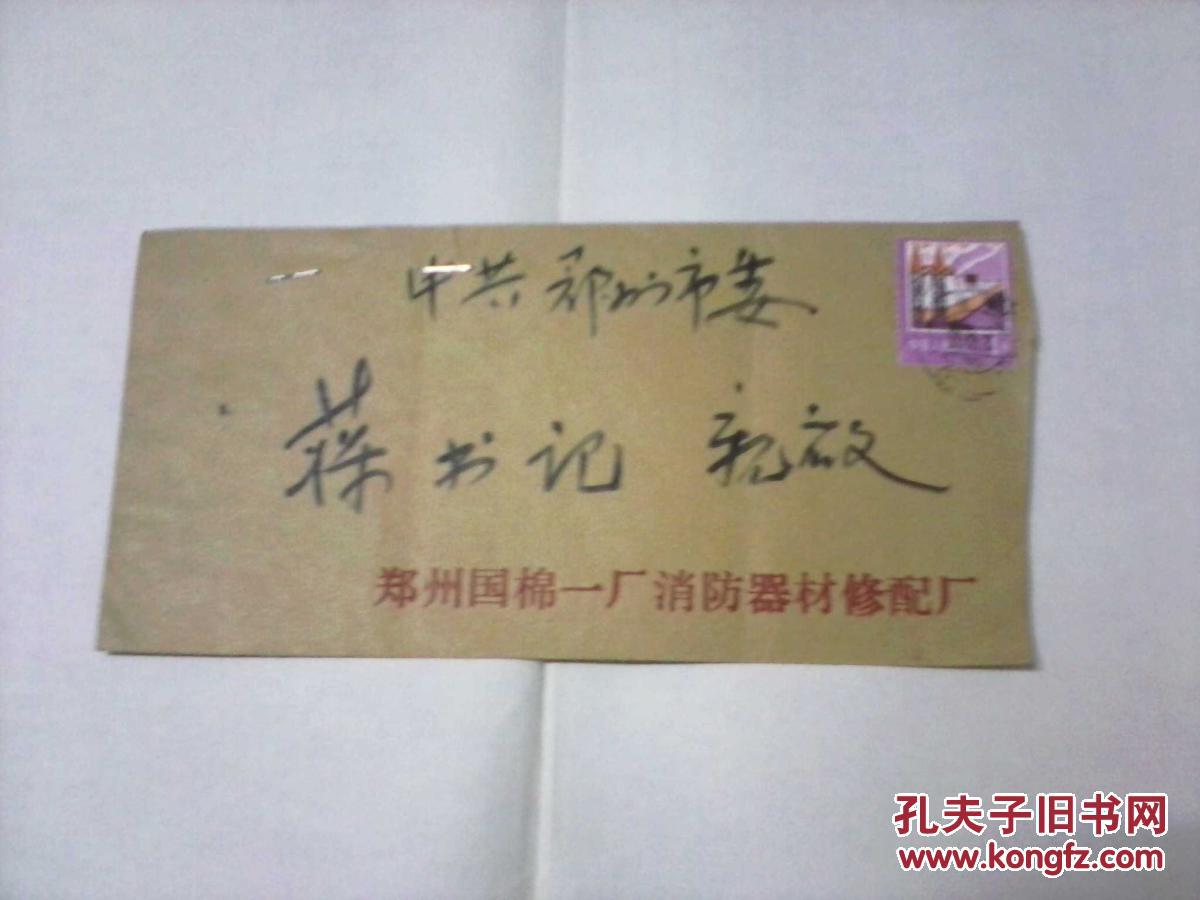 中共郑州市委
蒋书记 亲启
郑州国棉一厂消防器材修配厂
孔夫子旧书网
www.kongfz.com